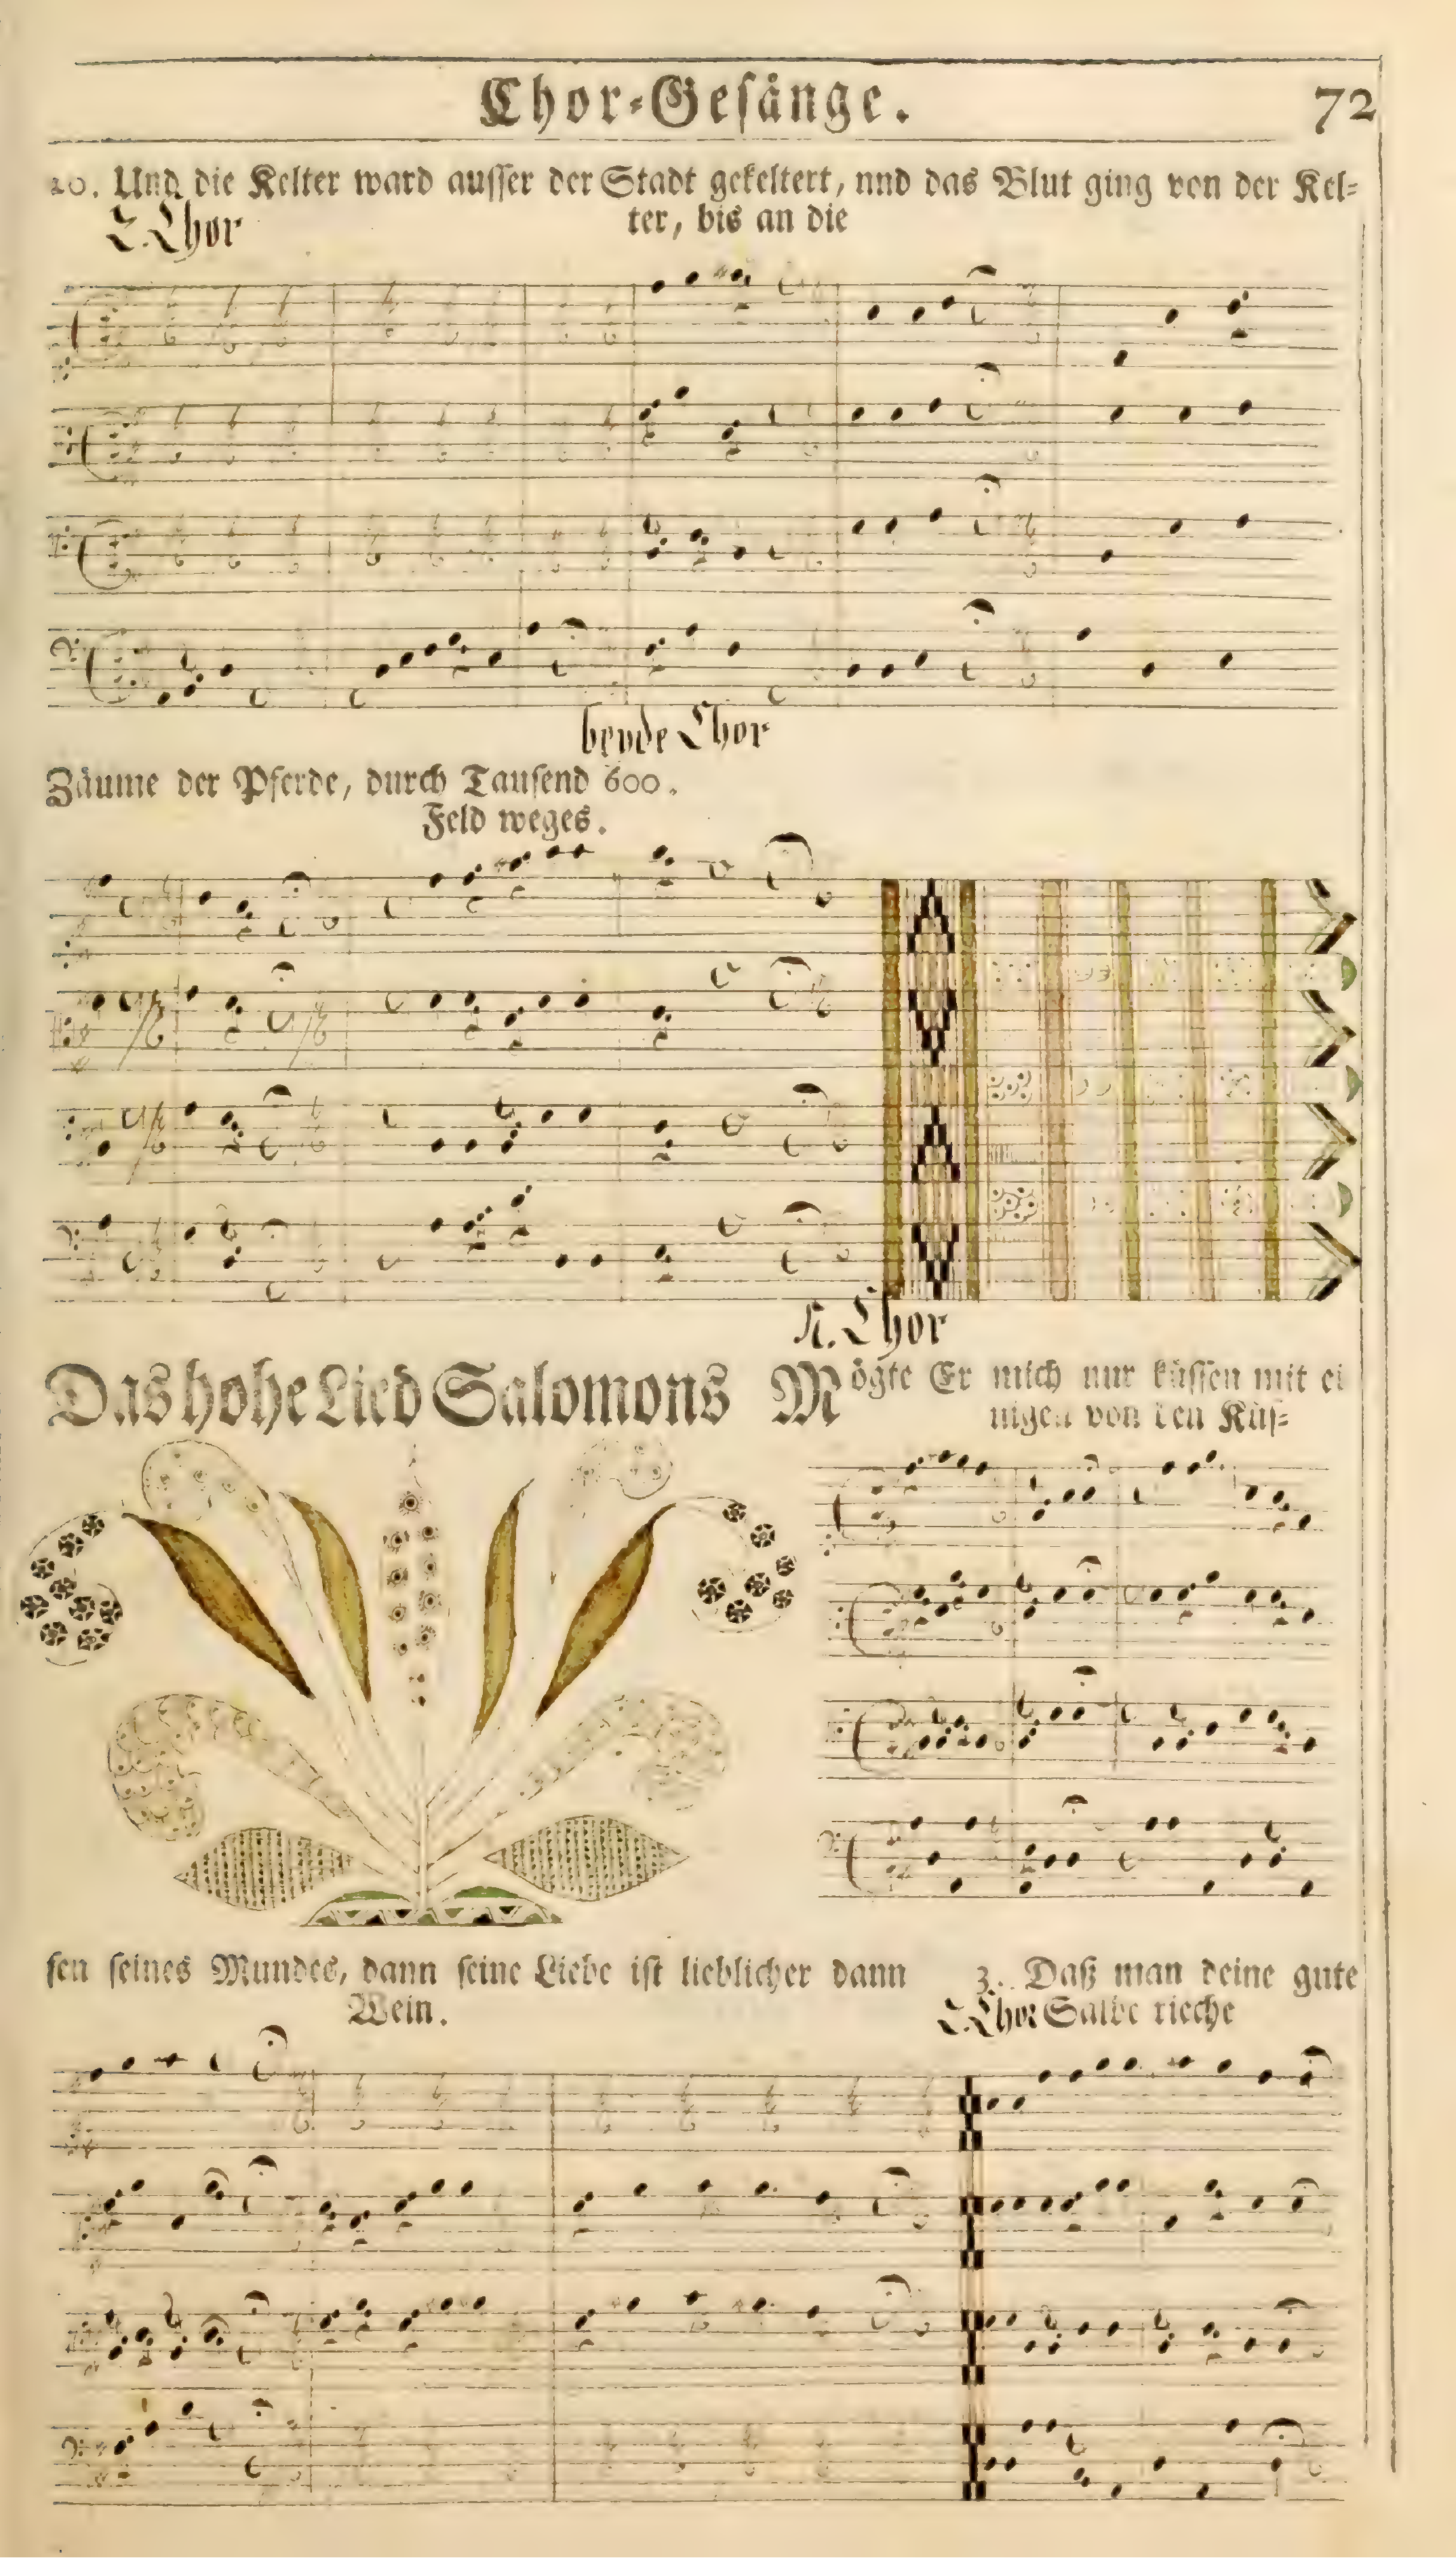 Chor-Gesänge.
72
20. Und die Kelter ward ausser der Stadt gekeltert, nnd das Blut ging von der Kel-
2. Chor
ter, bis an die
beyde Chor
Zäume der Pferde, durch Tausend 600.
Feld weges.
1. Chor
Das hohe Lied Salomons
Mögte Er mich nur küssen mit ei
nigen von den Küs-
sen seines Mundes, dann seine Liebe ist lieblicher dann
Wein.
3. Daß man deine gute
2. Chor Salbe rieche